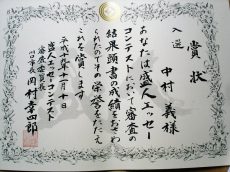 賞状
入選
中村 義様
あなたは盛人エッセー
コンテストにおいて審査の
結果頭書の成績をおさめ
られたのでその栄誉をたたえ
これを賞します
平成 年十一月十日
盛人エッセーコンテスト
審査委員長
川口市長 岡村幸四郎